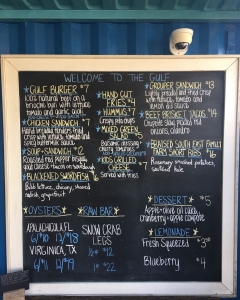 WELCOME TO THE GULF
GULF BURGER $7
100% natural beef on a
brioche bun with lettuce
tomato and garlic aioli
CHICKEN SANDWICH $7
Hand breaded tenders, fried
crisp with lettuce, tomato and
spicy buttermilk sauce
SOUP + SANDWICH $12
Roasted red pepper bisque
BLACKENED SWORDFISH
Bibb lettuce, chicory, shaved
radish, grapefruit
HAND CUT
FRIES $4
HUMMUS $7
Crispy pita chips
MIXED GREEN
SALAD
Balsamic dressing
cherry tomatoes
KIDS GRILLED
CHEESE
Served with fries
GROUPER SANDWICH $13
tomato and
lemon dill sauce
BEEF BRISKET TACOS $14
onions, cilantro
BRAISED SOUTH EAST FAMILY
FARMS SHORT RIBS $16
Rosemary smashed potatoes
OYSTERS
APALACHICOLA, FL
6/$10 12/$18
VIRGINICA, TX
6/$11 12/$19
RAW BAR
SNOW CRAB
LEGS
½# $12
1# $22
DESSERT $5
Apple + olive oil cake
Cranberry + apple compote
LEMONADE
Fresh Squeezed $3
Blueberry $4